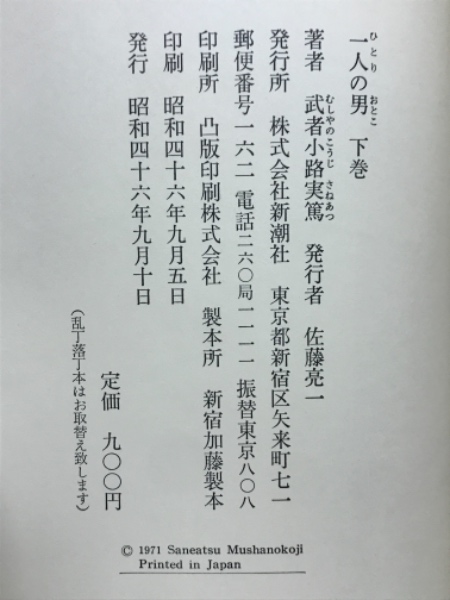 一人の男 下巻
著者 武者小路実篤 発行者 佐藤亮一
発行所 株式会社新潮社 東京都新宿区矢来町七一
郵便番号一六二 電話二六〇局一一一一 振替東京八〇八
印刷所 凸版印刷株式会社 製本所 新宿加藤製本
印刷 昭和四十六年九月五日
発行 昭和四十六年九月十日
定価 九〇〇円
(乱丁落丁本はお取替え致します)
© 1971 Saneatsu Mushanokoji
Printed in Japan